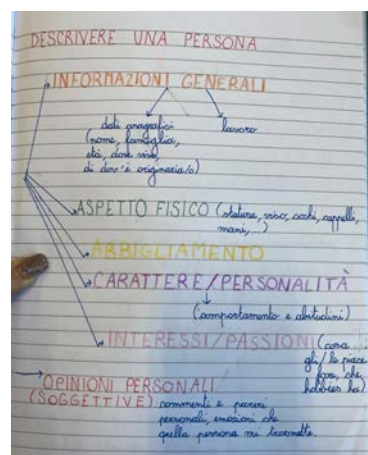 DESCRIVERE UNA PERSONA
INFORMAZIONI GENERALI
dati anagrafici
(nome, famiglia,
età, dove vive,
di dov'è originaria/o)
lavoro
ASPETTO FISICO (statura, viso, occhi, cappelli,
mani, ...)
ABBIGLIAMENTO
CARATTERE/PERSONALITÀ
(comportamento e abitudini)
INTERESSI/PASSIONI (cosa
gli/le piace
fare, che
hobbies ha)
OPINIONI PERSONALI
(SOGGETTIVE) commenti e pareri
personali, emozioni che
quella persona mi trasmette.